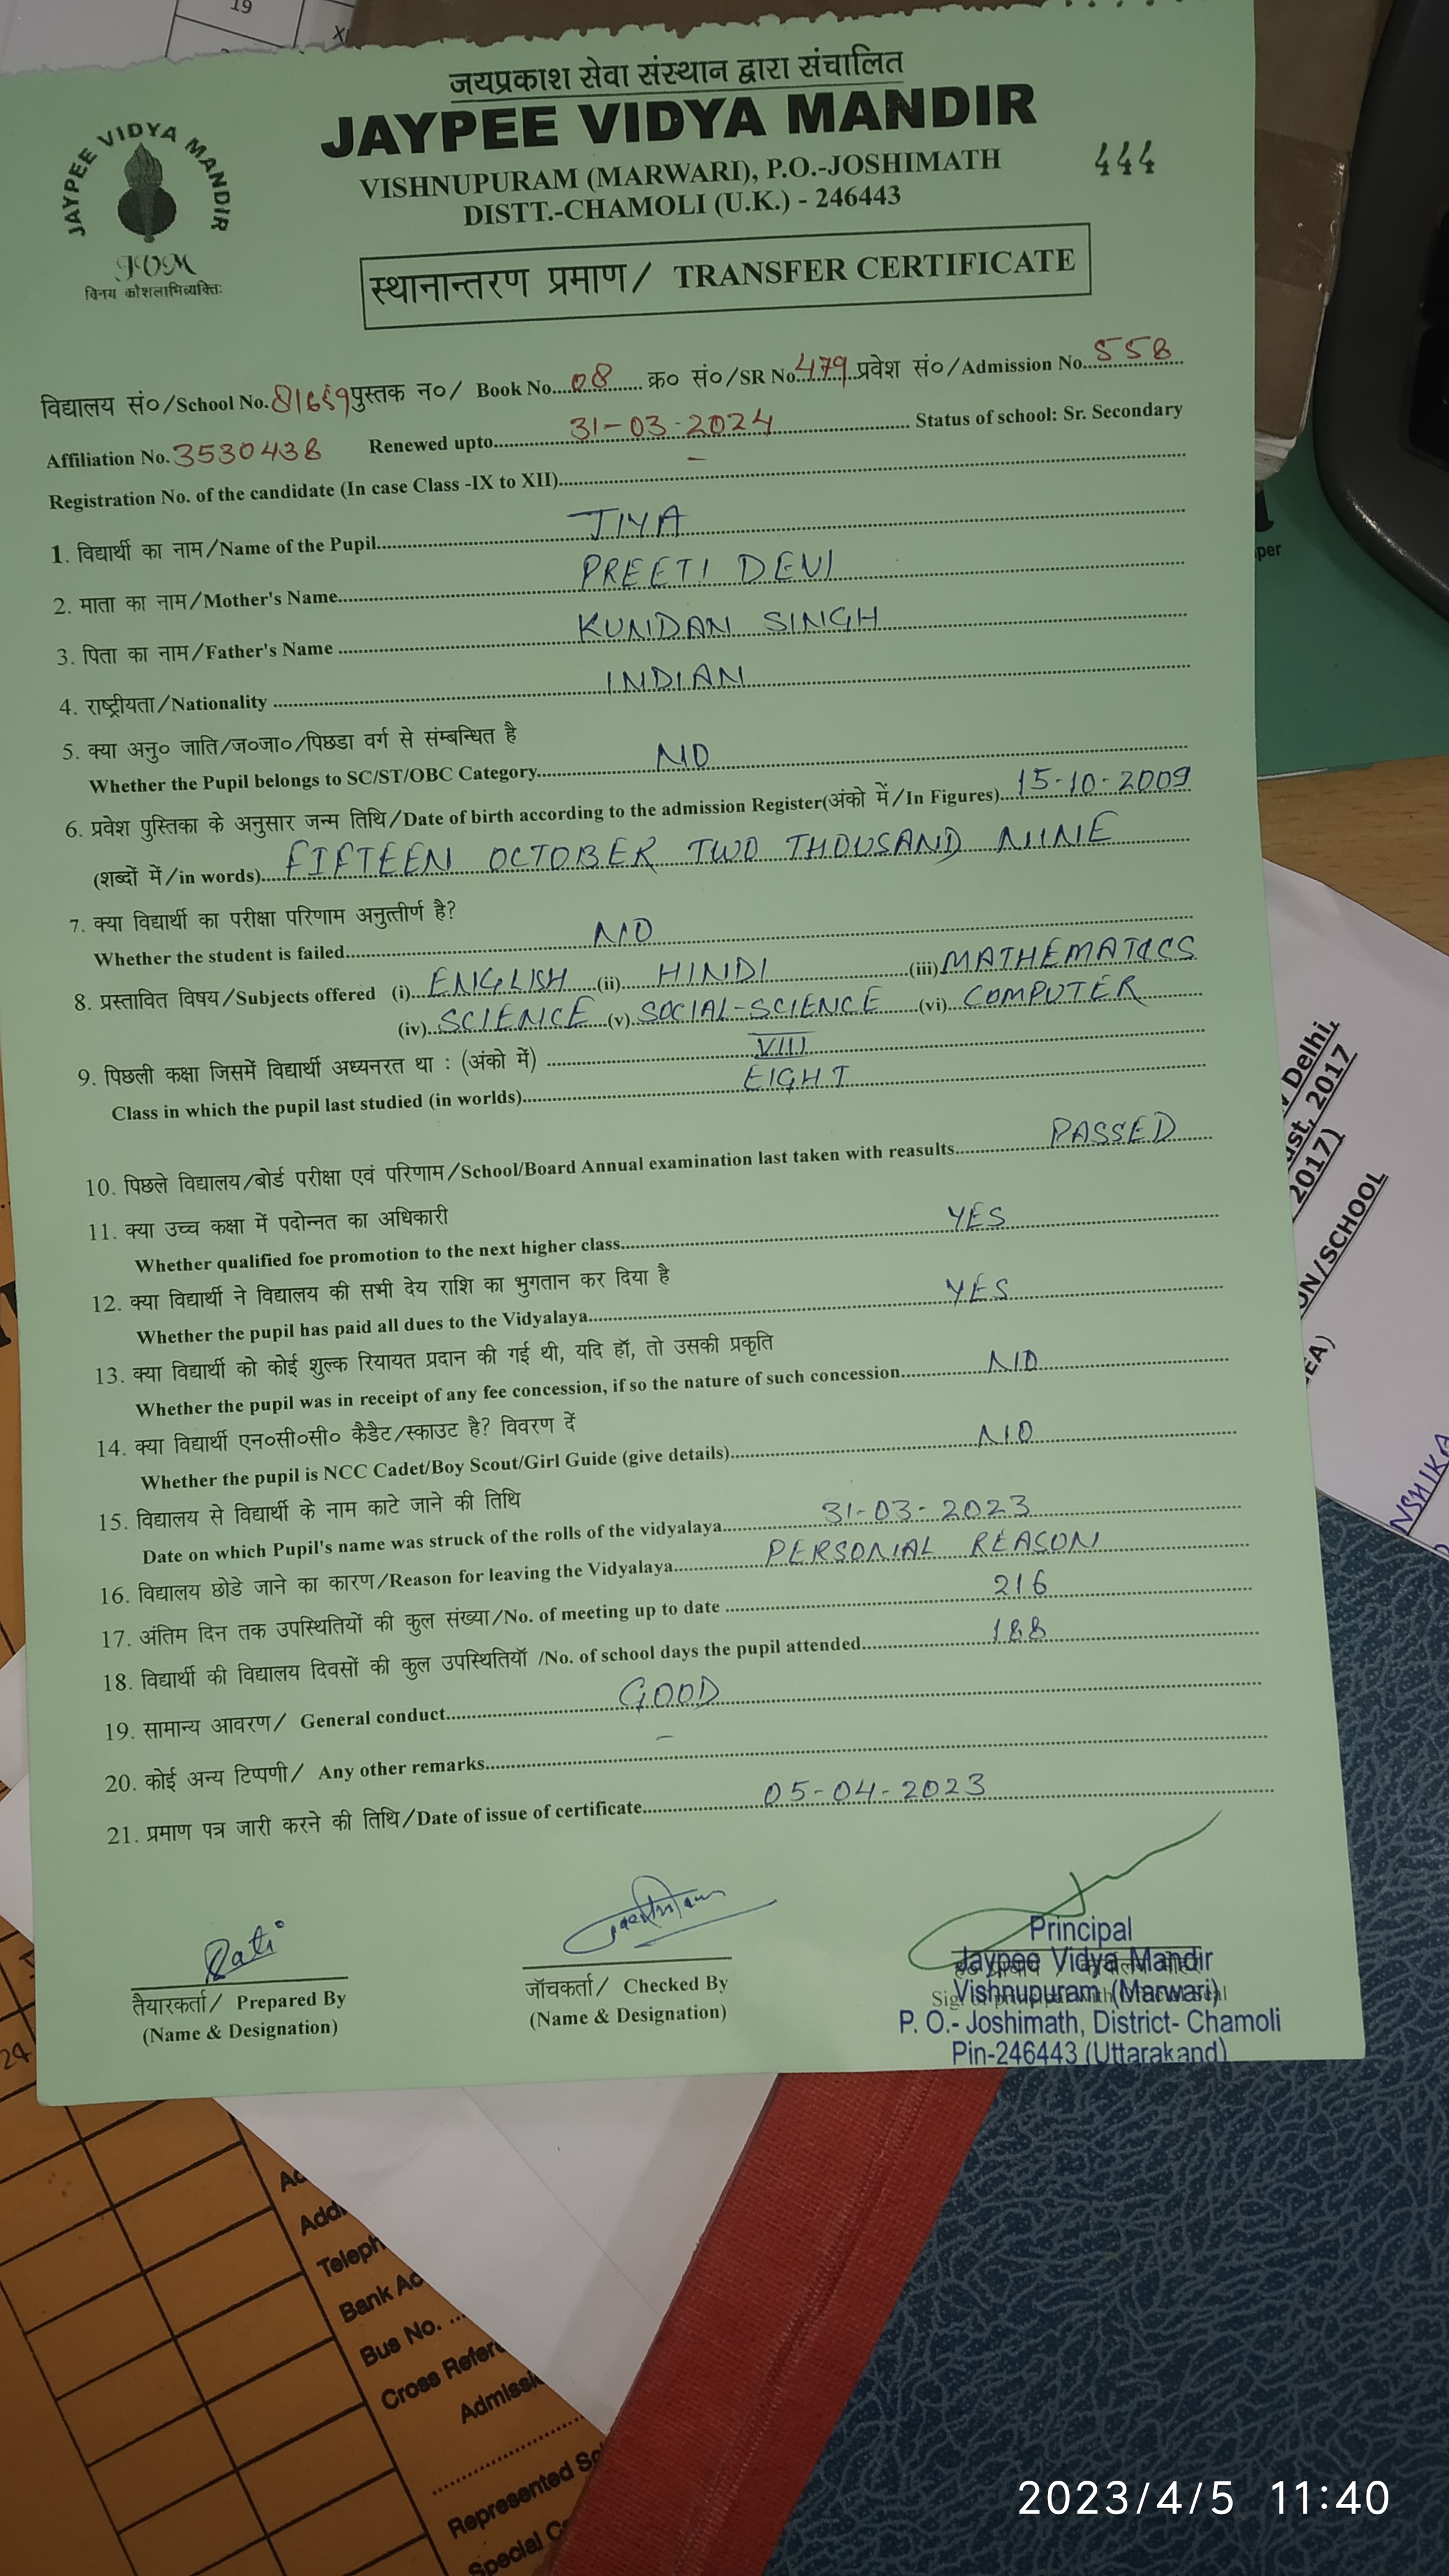 19
X
जयप्रकाश सेवा संस्थान द्वारा संचालित
JAYPEE VIDYA MANDIR
JAYPEE VIDYA MANDIR
VISHNUPURAM (MARWARI), P.O.-JOSHIMATH
444
DISTT.-CHAMOLI (U.K.) - 246443
JVM
विनय कौशलाभिव्यक्तिः
स्थानान्तरण प्रमाण/ TRANSFER CERTIFICATE
विद्यालय सं०/School No. 81659 पुस्तक न०/ Book No....08...... क्र० सं०/SR No.479. प्रवेश सं०/Admission No...558...
Affiliation No. 3530438 Renewed upto.....31-03-2024..... Status of school: Sr. Secondary
Registration No. of the candidate (In case Class -IX to XII)..... -
1. विद्यार्थी का नाम/Name of the Pupil.....JIYA.....
2. माता का नाम/Mother's Name.....PREETI DEVI.....
3. पिता का नाम/Father's Name .....KUNDAN SINGH.....
4. राष्ट्रीयता/Nationality .....INDIAN.....
5. क्या अनु० जाति/ज०जा०/पिछडा वर्ग से संम्बन्धित है
Whether the Pupil belongs to SC/ST/OBC Category.....NO.....
6. प्रवेश पुस्तिका के अनुसार जन्म तिथि/Date of birth according to the admission Register(अंको में/In Figures)...15-10-2009
(शब्दों में/in words)....FIFTEEN OCTOBER TWO THOUSAND NINE.....
7. क्या विद्यार्थी का परीक्षा परिणाम अनुत्तीर्ण है?
Whether the student is failed.....NO.....
8. प्रस्तावित विषय/Subjects offered (i)..ENGLISH...(ii)...HINDI.....(iii)MATHEMATICS
(iv)..SCIENCE..(v).SOCIAL-SCIENCE....(vi)..COMPUTER.....
9. पिछली कक्षा जिसमें विद्यार्थी अध्यनरत था : (अंको में) .....VIII.....
Class in which the pupil last studied (in worlds).....EIGHT.....
10. पिछले विद्यालय/बोर्ड परीक्षा एवं परिणाम/School/Board Annual examination last taken with reasults.....PASSED.....
11. क्या उच्च कक्षा में पदोन्नत का अधिकारी
Whether qualified foe promotion to the next higher class.....YES.....
12. क्या विद्यार्थी ने विद्यालय की सभी देय राशि का भुगतान कर दिया है
Whether the pupil has paid all dues to the Vidyalaya.....YES.....
13. क्या विद्यार्थी को कोई शुल्क रियायत प्रदान की गई थी, यदि हॉ, तो उसकी प्रकृति
Whether the pupil was in receipt of any fee concession, if so the nature of such concession.....NO.....
14. क्या विद्यार्थी एन०सी०सी० कैडैट/स्काउट है? विवरण दें
Whether the pupil is NCC Cadet/Boy Scout/Girl Guide (give details).....NO.....
15. विद्यालय से विद्यार्थी के नाम काटे जाने की तिथि
Date on which Pupil's name was struck of the rolls of the vidyalaya.....31-03-2023.....
16. विद्यालय छोडे जाने का कारण/Reason for leaving the Vidyalaya.....PERSONAL REASON.....
17. अंतिम दिन तक उपस्थितियों की कुल संख्या/No. of meeting up to date .....216.....
18. विद्यार्थी की विद्यालय दिवसों की कुल उपस्थितियॉ /No. of school days the pupil attended.....188.....
19. सामान्य आवरण/ General conduct.....GOOD.....
20. कोई अन्य टिप्पणी/ Any other remarks..... -
21. प्रमाण पत्र जारी करने की तिथि/Date of issue of certificate.....05-04-2023.....
Rati
तैयारकर्ता/ Prepared By
(Name & Designation)
जॉचकर्ता/ Checked By
(Name & Designation)
Principal
Jaypee Vidya Mandir
Vishnupuram (Marwari)
P. O.- Joshimath, District- Chamoli
Pin-246443 (Uttarakand)
per
Delhi,
ust, 2017
2017)
ON/SCHOOL
EA)
NSHIKA
24
Ac
Add
Teleph
Bank Ac
Bus No. ...
Cross Refer
Admissi
Represented Sc
Special Co
2023/4/5 11:40